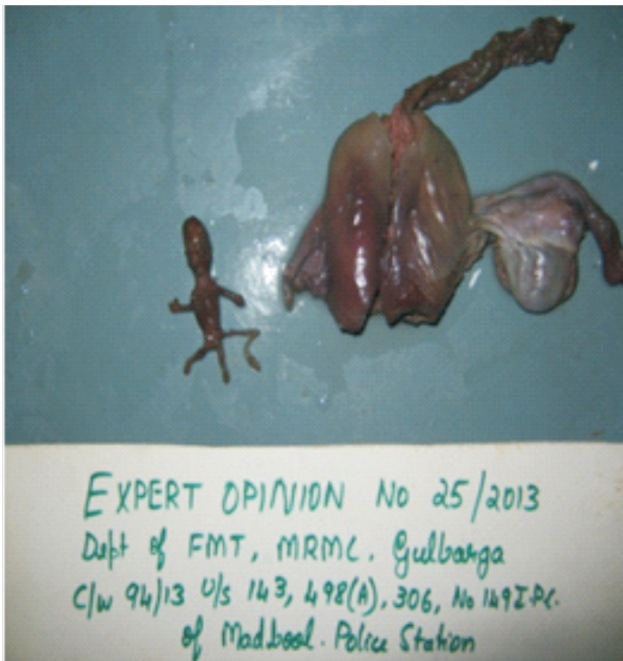 EXPERT OPINION NO 25/2013
Dept of FMT, MRMC. Gulbarga
C/w 94/13 U/s 143, 498(A), 306, No 149 I.P.C.
of Madbool. Police Station